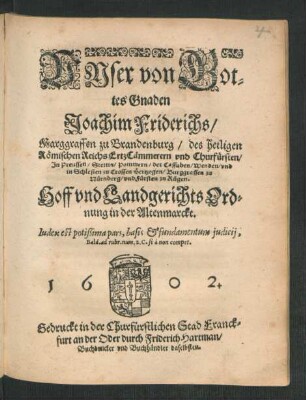 VNser von Got-
tes Gnaden
Joachim Friderichs/
Marggraffen zu Brandenburg / des heiligen
Römischen Reichs ErtzCämmerern vnd Churfürsten/
In Preussen/ Stettin/ Pommern/ der Cassuben/ Wenden/ vnd
in Schlesien zu Crossen Hertzogen/ Burggraffen zu
Nürnberg/ vnd Fürsten zu Rügen.
Hoff vnd Landgerichts Ord-
nung in der Altenmarcke.
Iudex est potissima pars, basis & fundamentum judicij,
Bald. ad rubr. num. 2. C. si à non compet.
1 6 0 2.
Gedruckt in der Churfürstlichen Stad Franck-
furt an der Oder durch Friderich Hartman/
Buchdrucker vnd Buchhändler daselbsten.